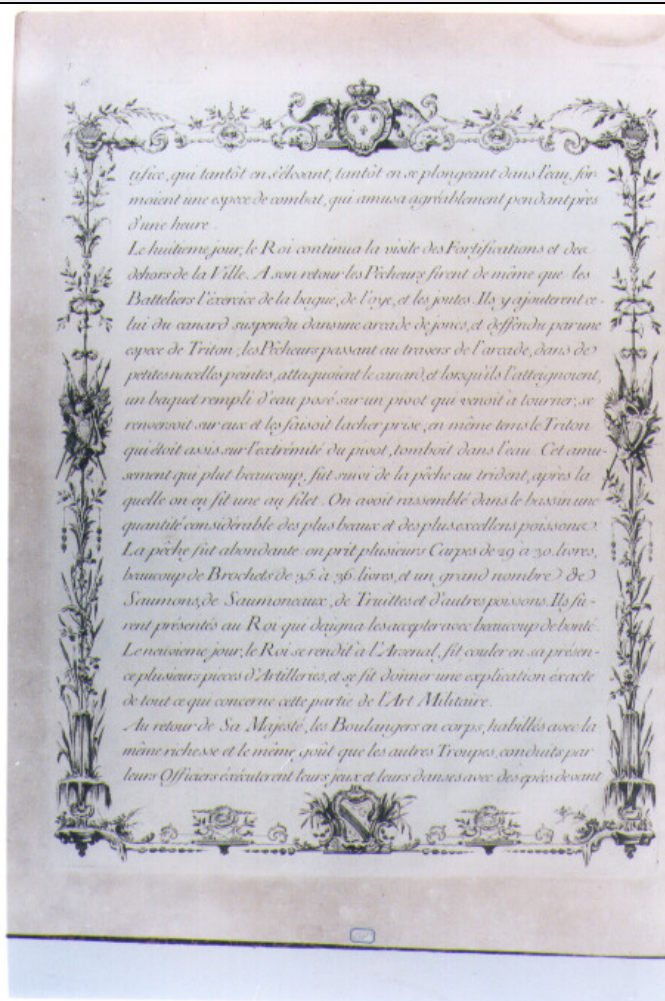 tifice, qui tantôt en s'élevant, tantôt en se plongeant dans l'eau, for-
moient une espece de combat, qui amusa agréablement pendant près
d'une heure.
Le huitieme jour, le Roi continua la visite des Fortifications et des
dehors de la Ville. A son retour les Pêcheurs firent de même que les
Batteliers l'éxercice de la bague, de l'oye, et les joutes. Ils y ajouterent ce-
lui du canard suspendu dans une arcade de joncs, et deffendu par une
espece de Triton, les Pêcheurs passant au travers de l'arcade, dans de
petites nacelles peintes, attaquoient le canard, et lorsqu'ils l'atteignoient,
un baquet rempli d'eau posé sur un pivot qui venoit à tourner, se
renversoit sur eux et les faisoit lacher prise, en même tems le Triton
qui étoit assis sur l'extrémité du pivot, tomboit dans l'eau. Cet amu-
sement qui plut beaucoup, fut suivi de la pêche au trident, après la
quelle on en fit une au filet. On avoit rassemblé dans le bassin une
quantité considérable des plus beaux et des plus excellens poissons.
La pêche fut abondante: on prit plusieurs Carpes de 29 à 30. livres,
beaucoup de Brochets de 35 à 36. livres, et un grand nombre de
Saumons, de Saumoneaux, de Truittes et d'autres poissons. Ils fu-
rent présentés au Roi qui daigna les accepter avec beaucoup de bonté.
Le neuvieme jour, le Roi se rendit à l'Arsenal, fit couler en sa présen-
ce plusieurs pieces d'Artilleries, et se fit donner une explication éxacte
de tout ce qui concerne cette partie de l'Art Militaire.
Au retour de Sa Majesté, les Boulangers en corps, habillés avec la
même richesse et le même goût que les autres Troupes, conduits par
leurs Officiers éxécuterent leurs jeux et leurs danses avec des epées devant